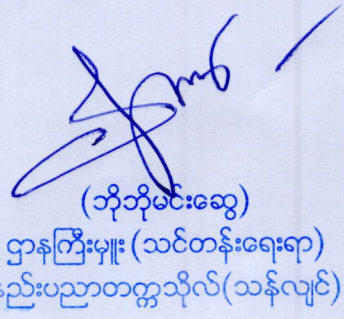 (ဘိုဘိုမင်းဆွေ)
ဌာနကြီးမှူး (သင်တန်းရေးရာ)
နည်းပညာတက္ကသိုလ်(သန်လျင်)